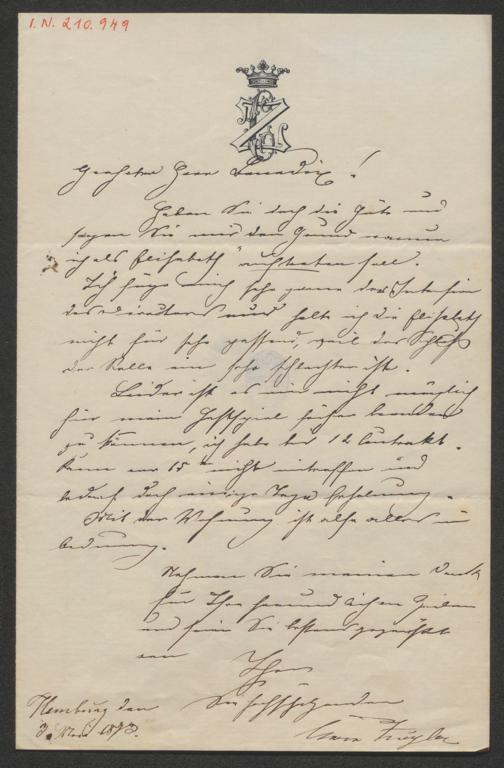 I. N. 210.949
Geehrter Herr Benedix!
Haben Sie doch die Güte und
sagen Sie mir den Grund warum
ich als Elisabeth auftreten soll.
Ich füge mich sehr gerne des
des Directors und halte ich die Elisabeth
nicht für sehr passend, weil der Schluß
der Rolle ein sehr schlechter ist.
Leider ist es mir nicht möglich
für mein Gastspiel früher
zu können, ich habe bis 12 Contrakt.
Kann vor 15 nicht eintreffen und
bedarf doch einige Tage Erholung.
Mit der Wohnung ist also alles in
Ordnung.
Nehmen Sie meinen Dank
für Ihre freundlichen Zeilen
und seien Sie bestens gegrüßt
von Ihrer
Sie hochschätzenden
Hamburg den
3. 1873.